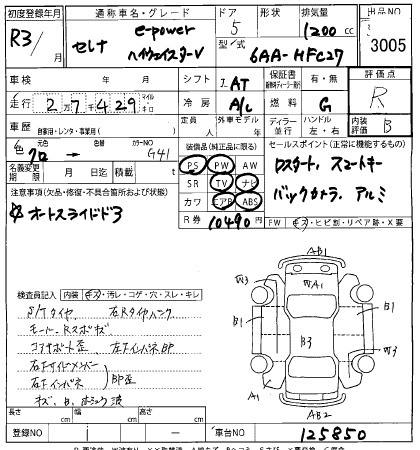 初度登録年月 通称車名・グレード ドア 形状 排気量 出品NO
R3/ 月 セレナ e-power ハイウェイスターV 5 1200 cc 3005
型/式 6AA-HFC27
車検 年 月 シフト IAT 保証書 有・無 評価点
走行 2万7千429 マイル キロ 冷房 A/C 燃料 G R
車歴 自家用・レンタ・事業用( ) 定員 人 外車モデル 年 ディーラー 並行 ハンドル 左・右 内装評価 B
色 元色 クロ → カラーNO G41 装備品(純正品に限る) セールスポイント(正常に機能するもの)
名義変更期限 月 日迄 積載 t PS PW AW Pスタート、スマートキー
注意事項(欠品・修復・不具合箇所および状態) SR TV ナビ バックカメラ、アルミ
☆オートスライドド3 カワ エアB ABS
R券 10490円 FW キズ・ヒビ割・リペア跡・X要
検査員記入 内装 キズ・汚レ・コゲ・穴・スレ・キレ
S/Tタイヤ 右Rタイヤハウス
コアサポート歪 左Fインパネ
右Fサイドメンバー
右Fインパネ
AB1
W3 WA1 W3
B1 B3 B1
A1 AB2
長さ cm 幅 cm 高さ cm
登録NO 車台NO 125850